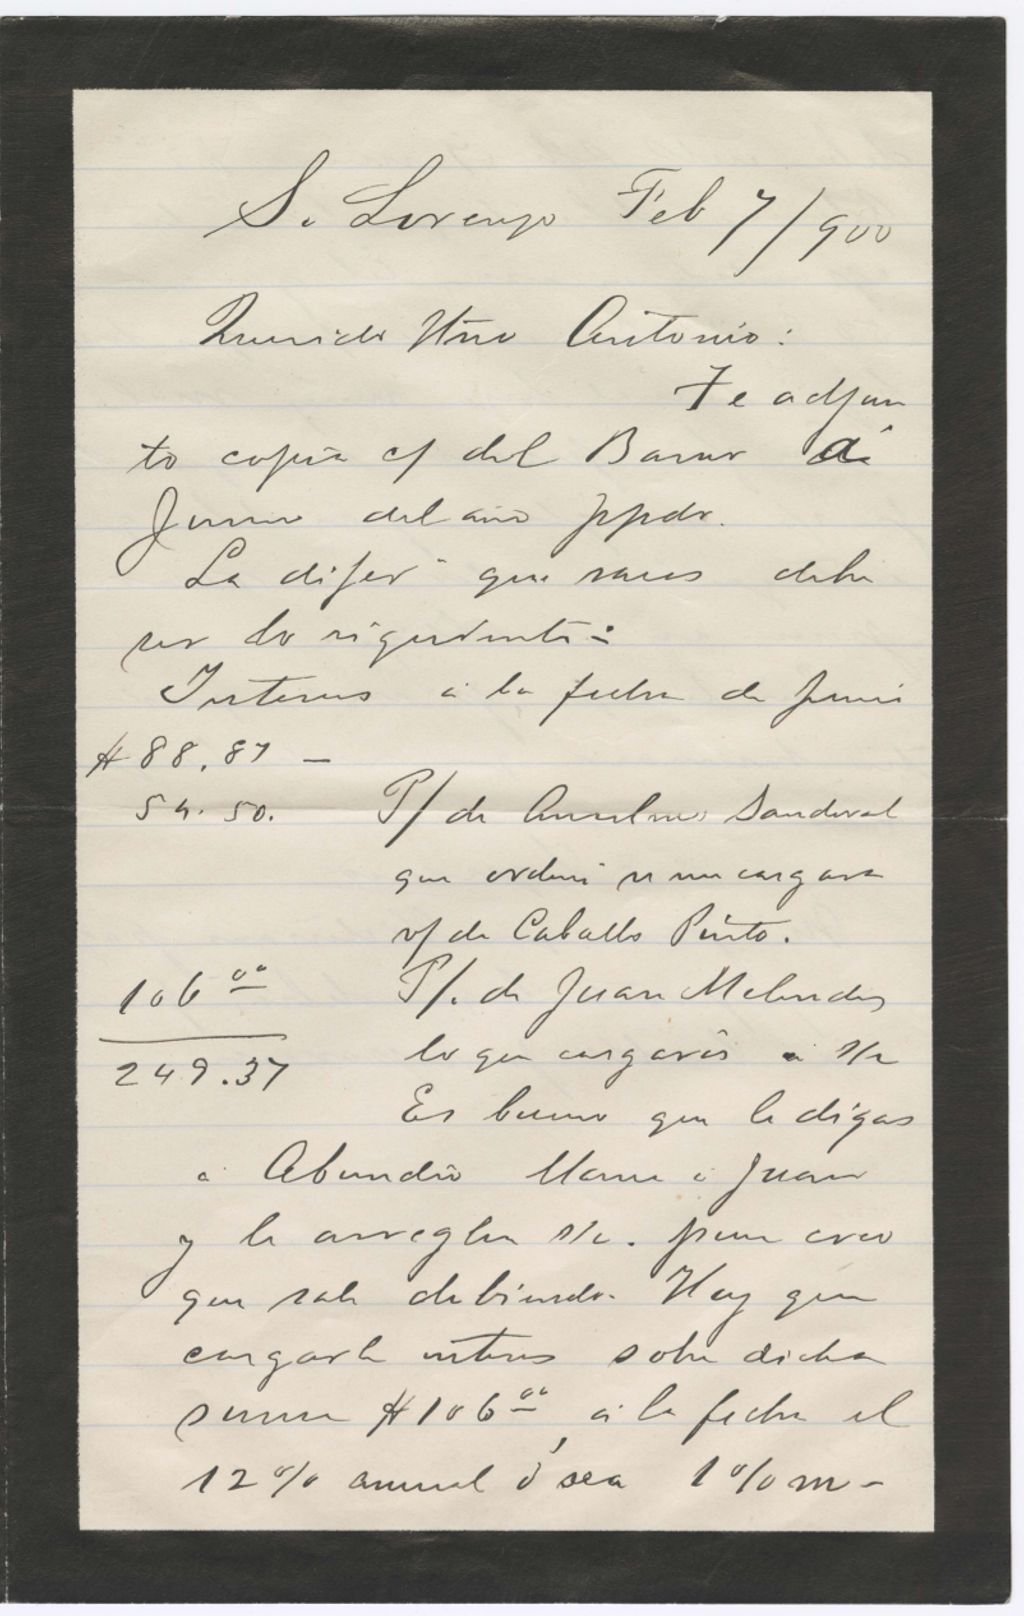 S. Lorenzo Feb 7/900
Querido Hno Antonio:
Te adjun
to copia c/ del Banco á
Junio del año ppdo.
La difer" que sacas debe
ser lo siguiente:
Intereses á la fecha de Junio
$88.87 —
54.50. P/ de Anselmo Sandoval
que ordené se me cargara
v/ de Caballo Pinto.
106 00 P/. de Juan Melendez
lo que cargarás a s/c
249.37
Es bueno que le digas
á Abundio llame á Juan
y le arregle s/c. pues creo
que sale debiendo. Hay que
cargarle interes sobre dicha
suma $106 00, á la fecha el
12% anual ó sea 1% m-